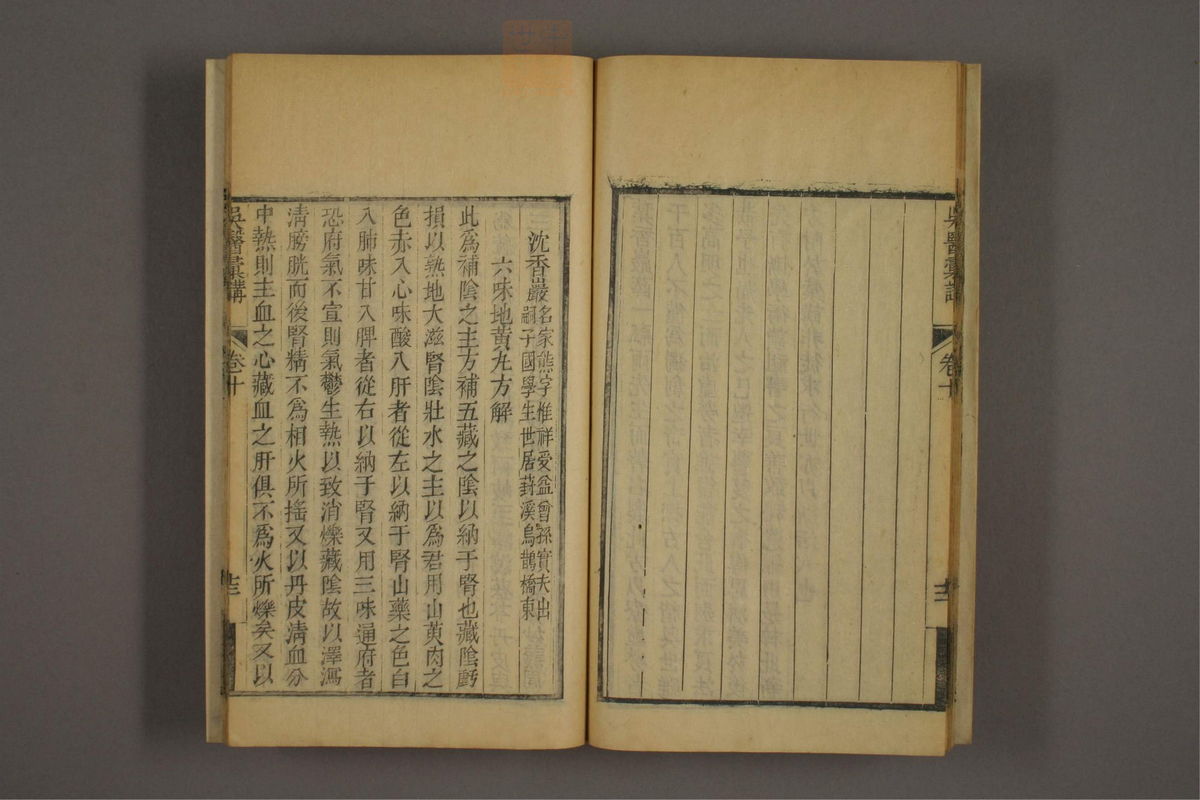 吳醫彙講
卷十
沈香巖名家熊字惟祥愛益曾孫實夫出
嗣子國學生世居葑溪烏鵲橋東
六味地黃丸方解
此為補陰之主方補五藏之陰以納于腎也藏陰虧
損以熟地大滋腎陰壯水之主以為君用山萸肉之
色赤入心味酸入肝者從左以納于腎山藥之色白
入肺味甘入脾者從右以納于腎又用三味通府者
恐府氣不宣則氣鬱生熱以致消爍藏陰故以澤瀉
清膀胱而後腎精不為相火所搖又以丹皮清血分
中熱則主血之心藏血之肝俱不為火所爍矣又以
吳醫彙講
卷十